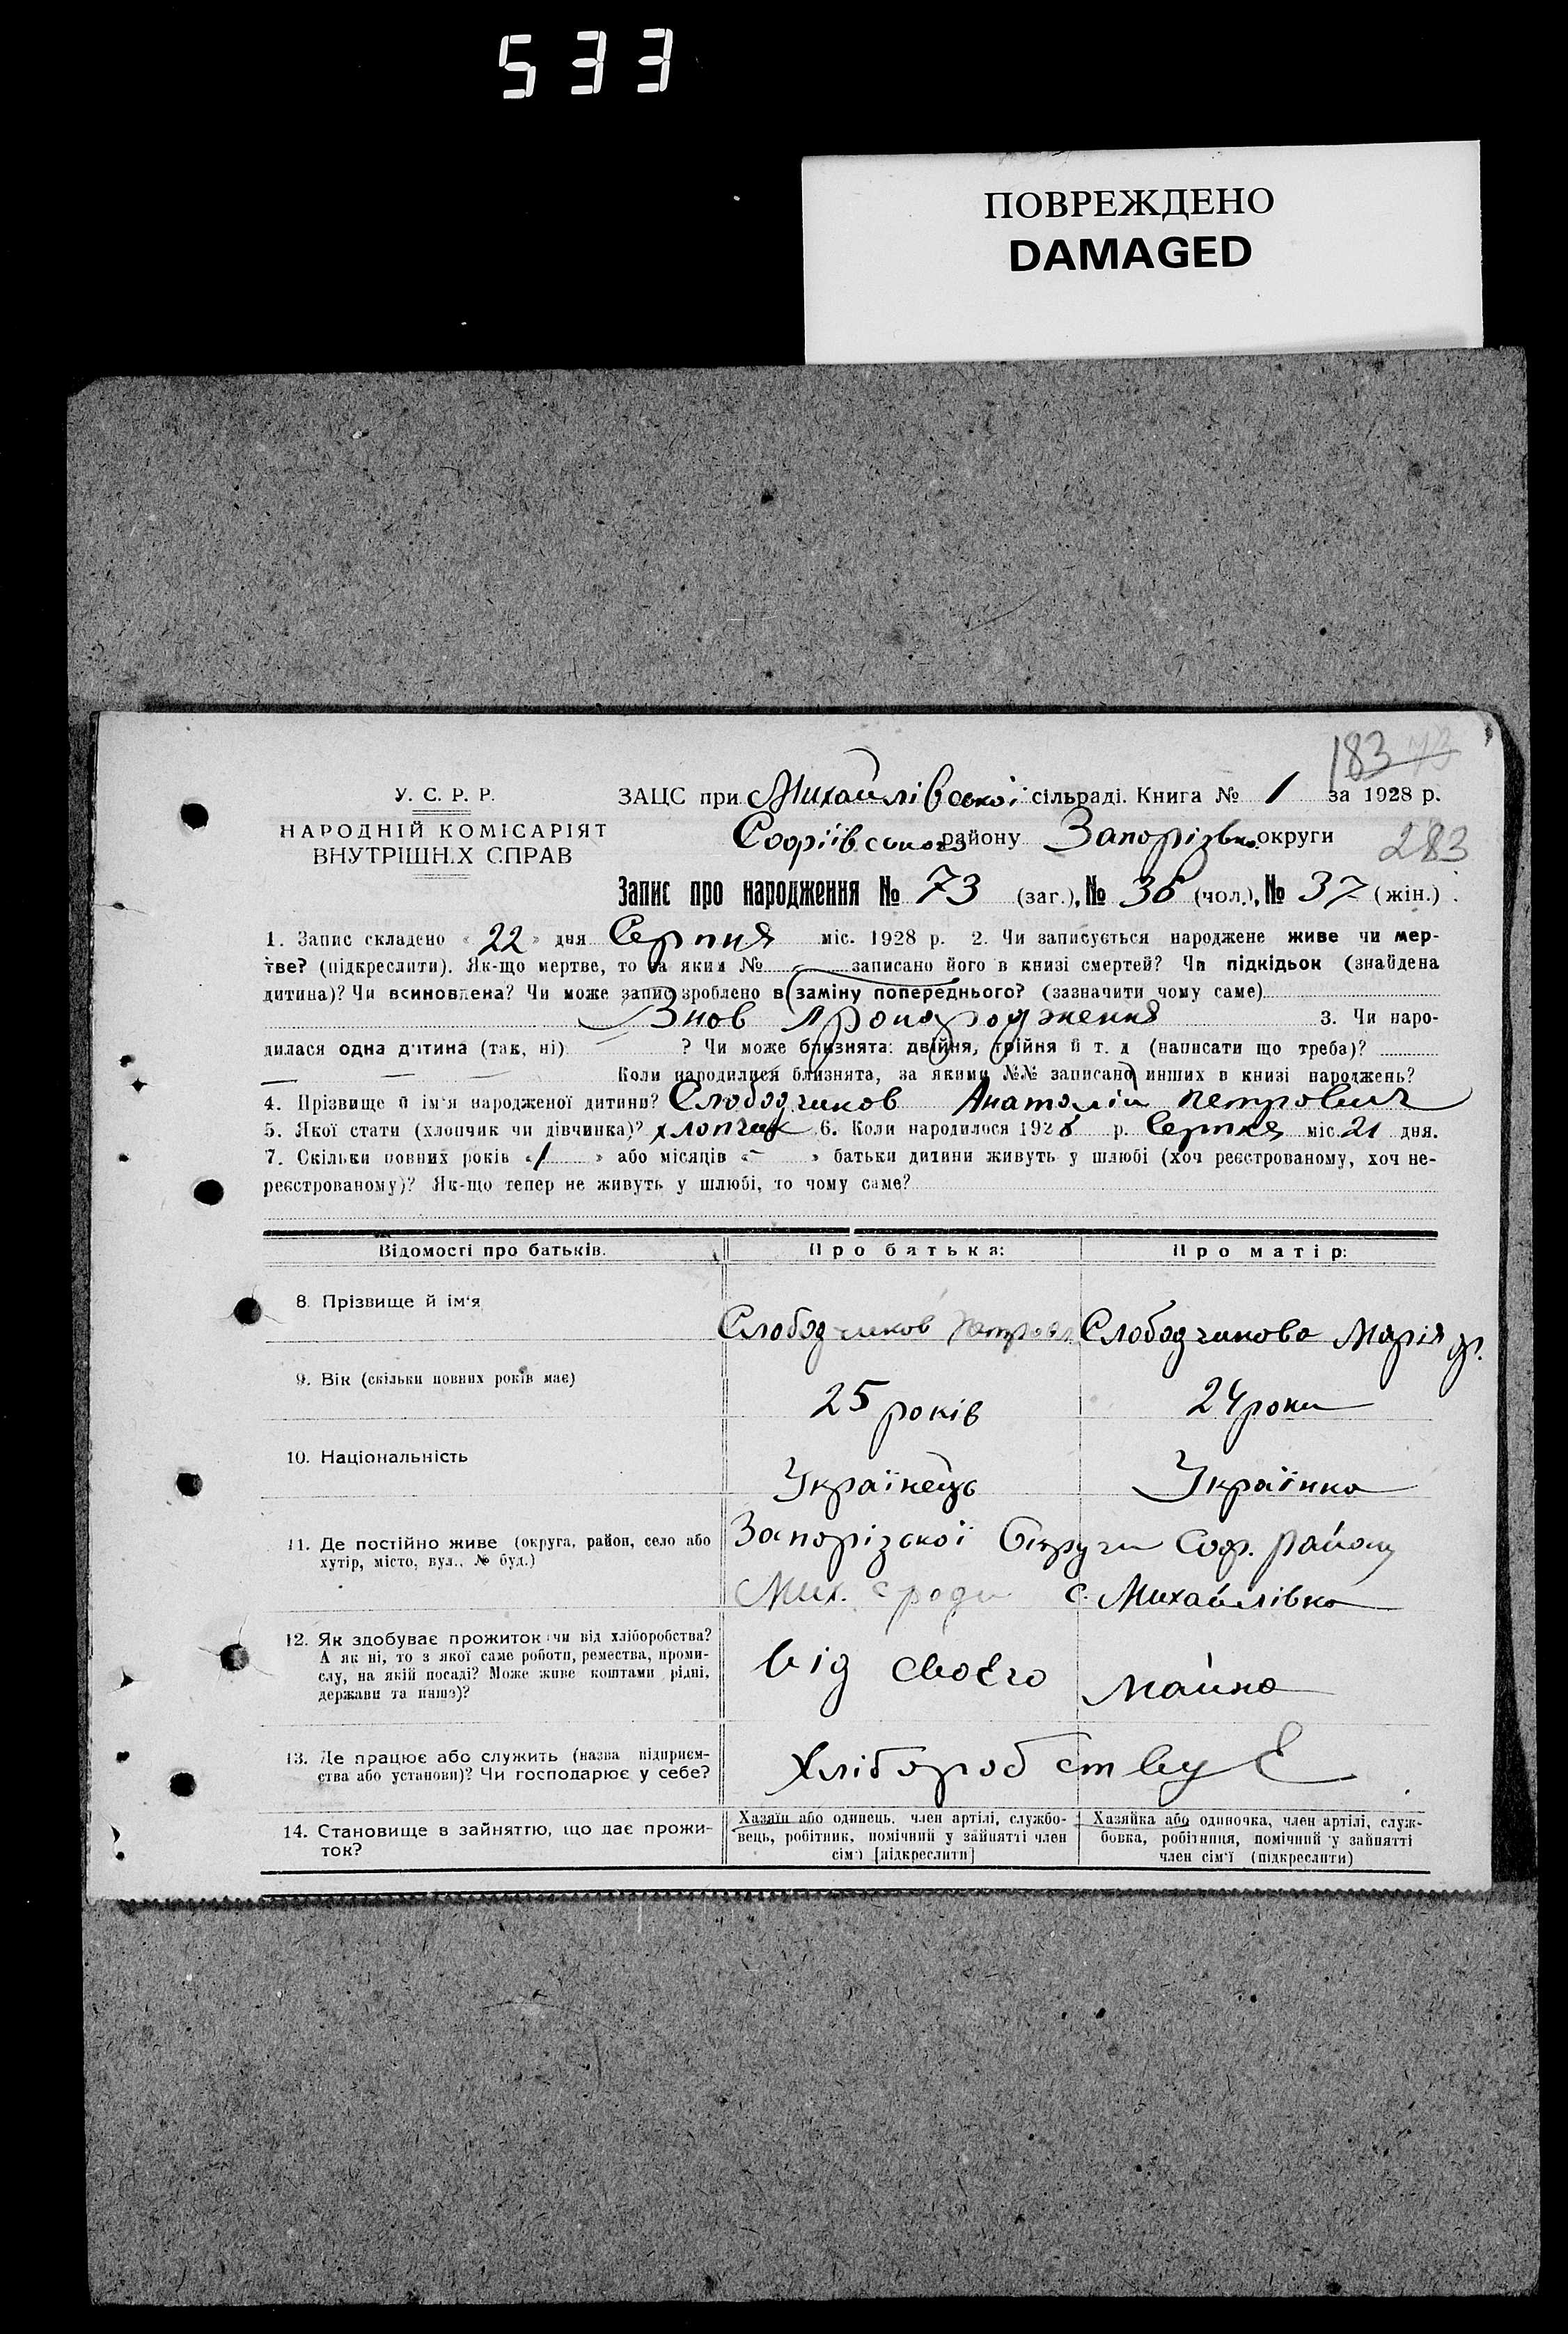 533
ПОВРЕЖДЕНО
DAMAGED
183 73
У. С. Р. Р.
НАРОДНІЙ КОМІСАРІЯТ
ВНУТРІШНІХ СПРАВ
ЗАЦС при Михайлівської сільраді. Книга № 1 за 1928 р.
Софіївського району Запорізької округи
283
Запис про народження № 73 (заг.), № 36 (чол.), № 37 (жін.)
1. Запис складено « 22 » дня Серпня міс. 1928 р. 2. Чи записується народжене живе чи мер-
тве? (підкреслити). Як-що мертве, то за яким № записано його в книзі смертей? Чи підкідьок (знайдена
дитина)? Чи всиновлена? Чи може запис зроблено в заміну попереднього? (зазначити чому саме)
Знов 3. Чи наро-
дилася одна дитина (так, ні) ? Чи може близнята: двійня, трійня й т. д (написати що треба)?
Коли народилися близнята, за якими №№ записано инших в книзі народжень?
4. Прізвище й ім'я народженої дитини? Слободчиков Анатолій Петрович
5. Якої стати (хлопчик чи дівчинка)? хлопчик 6. Коли народилося 1928 р. Серпня міс. 21 дня.
7. Скільки повних років « 1 » або місяців « – » батьки дитини живуть у шлюбі (хоч реєстрованому, хоч не-
реєстрованому)? Як-що тепер не живуть у шлюбі, то чому саме?
Відомості про батьків.
Про батька:
Про матір:
8. Прізвище й ім'я
Слободчиков Петро
Слободчикова Марія
9. Вік (скільки повних років має)
25 років
24 роки
10. Національність
Українець
Українка
11. Де постійно живе (округа, район, село або
хутір, місто, вул., № буд.)
Запорізської Округи Соф. району
Мих. с. Михайлівка
12. Як здобуває прожиток: чи від хліборобства?
А як ні, то з якої саме роботи, ремества, проми-
слу, на якій посаді? Може живе коштами рідні,
держави та инше)?
від своєго майна
13. Де працює або служить (назва підприєм-
ства або установи)? Чи господарює у себе?
Хліборобствує
14. Становище в зайняттю, що дає прожи-
ток?
Хазяїн або одинець, член артілі, службо-
вець, робітник, помічний у зайнятті член
сім'ї [підкреслити]
Хазяйка або одиночка, член артілі, служ-
бовка, робітниця, помічний у зайнятті
член сім'ї (підкреслити)